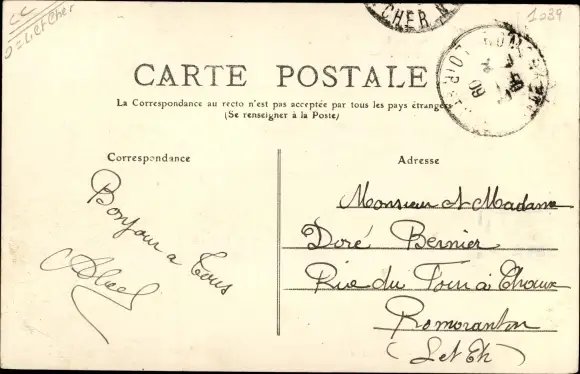 CC
O = L et Cher
CHER
1039
CARTE POSTALE
La Correspondance au recto n'est pas acceptée par tous les pays étrangers
(Se renseigner à la Poste)
Correspondance
Bonjour a Tous
Abel
Adresse
Monsieur et Madame
Doré Bernier
Rue du Four à Chaux
Romorantin
(L et Ch)